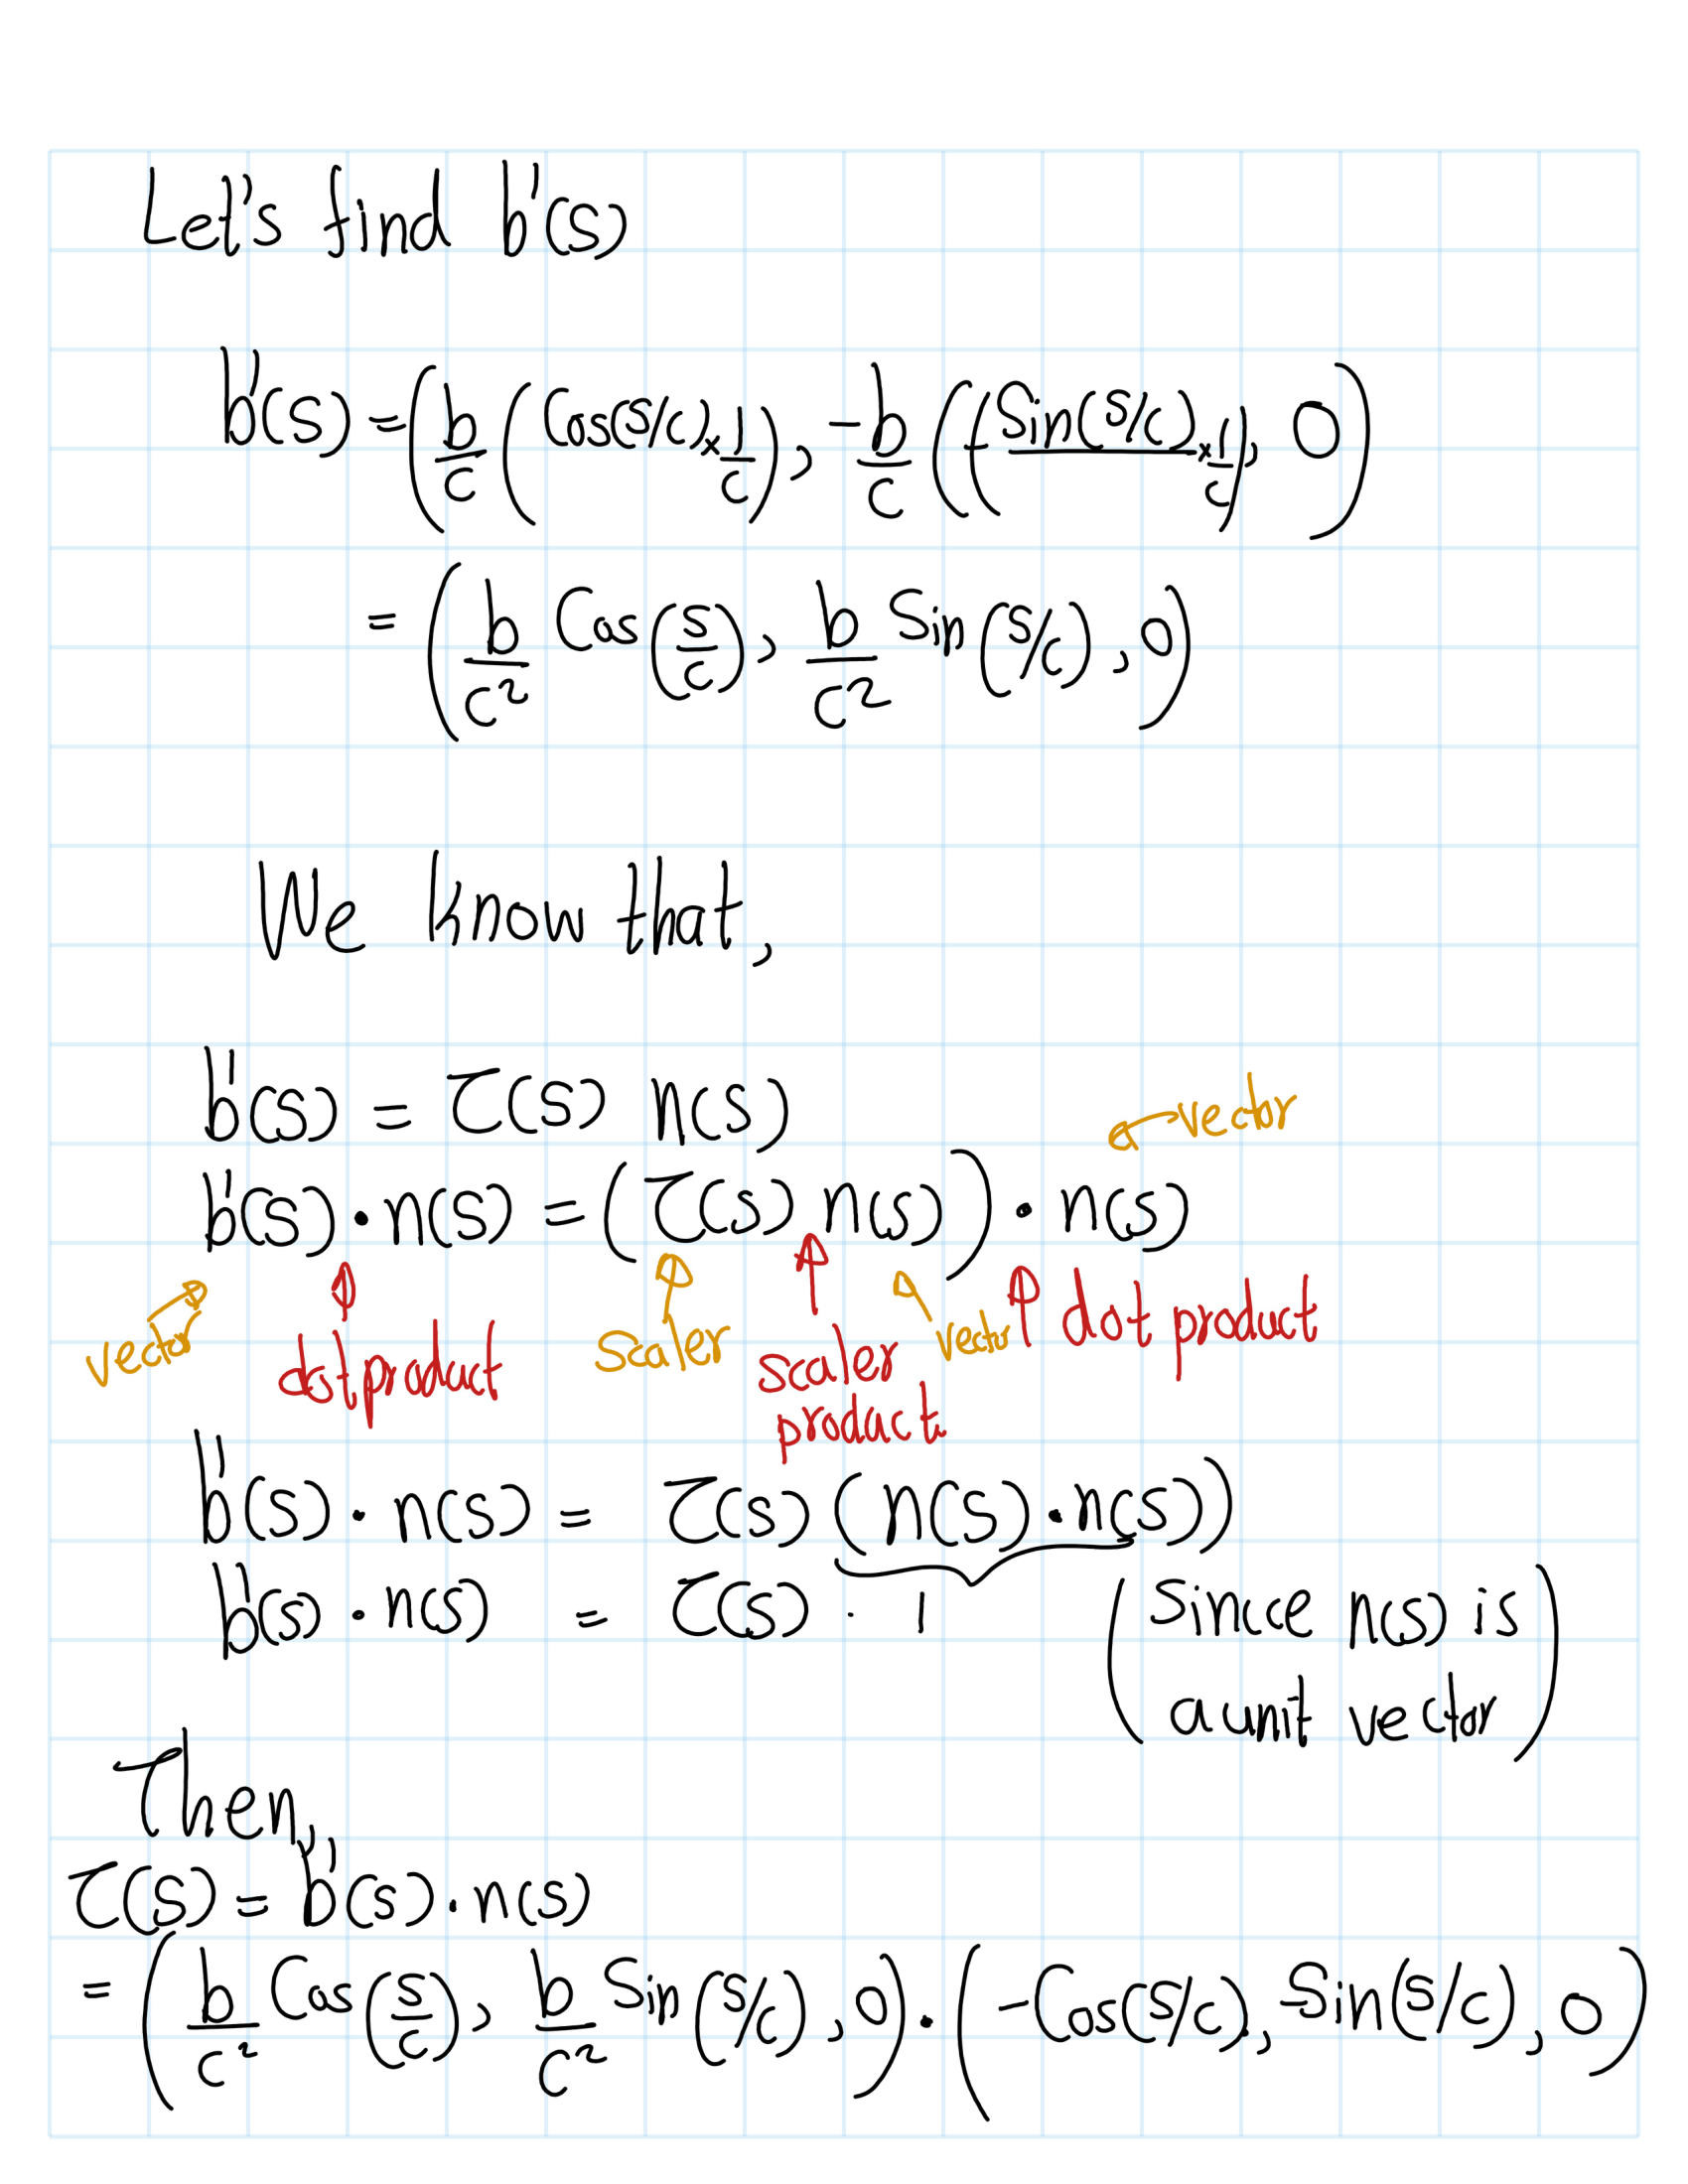 Let's find b'(s)
b'(s) = (b/c (Cos(s/c) × 1/c), -b/c ((-Sin(s/c) × 1/c), 0)
= (b/c² Cos(s/c), b/c² Sin(s/c), 0)
We know that,
b'(s) = τ(s) n(s)
vector
b'(s) · n(s) = (τ(s) n(s)) · n(s)
vector dot product scaler scaler product vector dot product
b'(s) · n(s) = τ(s) (n(s) · n(s))
b'(s) · n(s) = τ(s) · 1 (Since n(s) is
a unit vector)
Then,
τ(s) = b'(s) · n(s)
= (b/c² Cos(s/c), b/c² Sin(s/c), 0) · (-Cos(s/c), -Sin(s/c), 0)